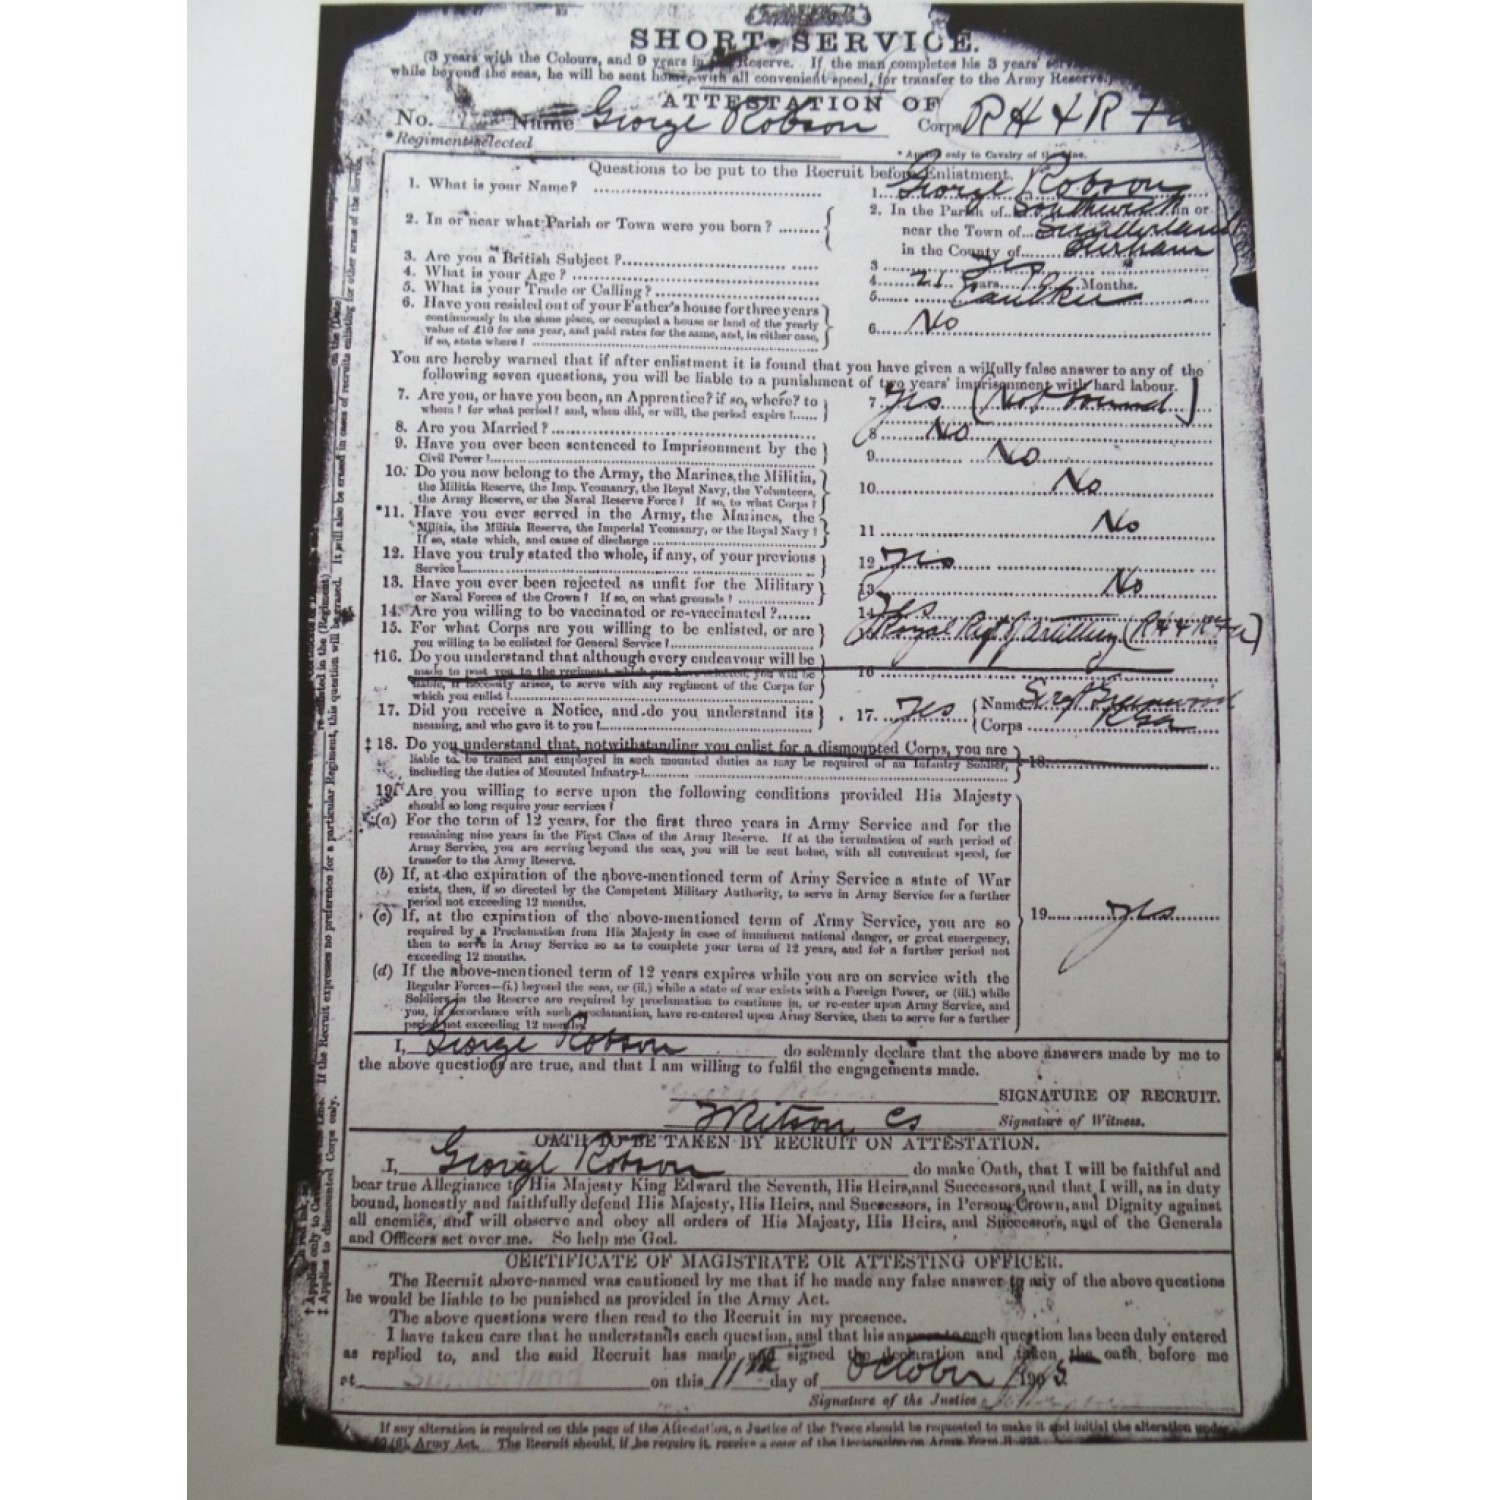 SHORT SERVICE.
(3 years with the Colours, and 9 years in the Reserve. If the man completes his 3 years'
while beyond the seas, he will be sent home, with all convenient speed, for transfer to the Army Reserve.)
ATTESTATION OF
No. Name George Robson Corps R H & R F A
*Regiment selected
* Applies only to Cavalry of the Line.
Questions to be put to the Recruit before Enlistment.
1. What is your Name? 1. George Robson
2. In or near what Parish or Town were you born? 2. In the Parish of Southwick in or
near the Town of Sunderland
in the County of Durham
3. Are you a British Subject? 3 Yes
4. What is your Age? 4. 21 Years Months.
5. What is your Trade or Calling? 5. Caulker
6. Have you resided out of your Father's house for three years
continuously in the same place, or occupied a house or land of the yearly
value of £10 for one year, and paid rates for the same, and, in either case,
if so, state where? 6. No
You are hereby warned that if after enlistment it is found that you have given a wilfully false answer to any of the
following seven questions, you will be liable to a punishment of two years' imprisonment with hard labour.
7. Are you, or have you been, an Apprentice? if so, where? to
whom? for what period? and, when did, or will, the period expire? 7. Yes (Not bound)
8. Are you Married? 8 No
9. Have you ever been sentenced to Imprisonment by the
Civil Power? 9. No
10. Do you now belong to the Army, the Marines, the Militia,
the Militia Reserve, the Imp. Yeomanry, the Royal Navy, the Volunteers,
the Army Reserve, or the Naval Reserve Force? If so, to what Corps? 10. No
*11. Have you ever served in the Army, the Marines, the
Militia, the Militia Reserve, the Imperial Yeomanry, or the Royal Navy?
If so, state which, and cause of discharge 11 No
12. Have you truly stated the whole, if any, of your previous
Service? 12 Yes
13. Have you ever been rejected as unfit for the Military
or Naval Forces of the Crown? If so, on what grounds? 13. No
14. Are you willing to be vaccinated or re-vaccinated? 14 Yes
15. For what Corps are you willing to be enlisted, or are
you willing to be enlisted for General Service? Royal Regt of Artillery (R H & R F A)
†16. Do you understand that although every endeavour will be
made to post you to the regiment which you have selected, you will be
liable, if necessity arises, to serve with any regiment of the Corps for
which you enlist? 16
17. Did you receive a Notice, and do you understand its
meaning, and who gave it to you? 17. Yes Name Sergt
Corps RGA
‡18. Do you understand that, notwithstanding you enlist for a dismounted Corps, you are
liable to be trained and employed in such mounted duties as may be required of an Infantry Soldier,
including the duties of Mounted Infantry? 18
19. Are you willing to serve upon the following conditions provided His Majesty
should so long require your services?
(a) For the term of 12 years, for the first three years in Army Service and for the
remaining nine years in the First Class of the Army Reserve. If at the termination of such period of
Army Service, you are serving beyond the seas, you will be sent home, with all convenient speed, for
transfer to the Army Reserve.
(b) If, at the expiration of the above-mentioned term of Army Service a state of War
exists, then, if so directed by the Competent Military Authority, to serve in Army Service for a further
period not exceeding 12 months.
(c) If, at the expiration of the above-mentioned term of Army Service, you are so
required by a Proclamation from His Majesty in case of imminent national danger, or great emergency,
then to serve in Army Service so as to complete your term of 12 years, and for a further period not
exceeding 12 months. 19. Yes
(d) If the above-mentioned term of 12 years expires while you are on service with the
Regular Forces—(i.) beyond the seas, or (ii.) while a state of war exists with a Foreign Power, or (iii.) while
Soldiers in the Reserve are required by proclamation to continue in, or re-enter upon Army Service, and
you, in accordance with such proclamation, have re-entered upon Army Service, then to serve for a further
period not exceeding 12 months.
I, George Robson do solemnly declare that the above answers made by me to
the above questions are true, and that I am willing to fulfil the engagements made.
SIGNATURE OF RECRUIT.
Signature of Witness.
OATH TO BE TAKEN BY RECRUIT ON ATTESTATION.
I, George Robson do make Oath, that I will be faithful and
bear true Allegiance to His Majesty King Edward the Seventh, His Heirs, and Successors, and that I will, as in duty
bound, honestly and faithfully defend His Majesty, His Heirs, and Successors, in Person, Crown, and Dignity against
all enemies, and will observe and obey all orders of His Majesty, His Heirs, and Successors, and of the Generals
and Officers set over me. So help me God.
CERTIFICATE OF MAGISTRATE OR ATTESTING OFFICER.
The Recruit above-named was cautioned by me that if he made any false answer to any of the above questions
he would be liable to be punished as provided in the Army Act.
The above questions were then read to the Recruit in my presence.
I have taken care that he understands each question, and that his answer to each question has been duly entered
as replied to, and the said Recruit has made and signed the declaration and taken the oath before me
at Sunderland on this 11th day of October 1905
Signature of the Justice
If any alteration is required on this page of the Attestation, a Justice of the Peace should be requested to make it and initial the alteration under
Army Act. The Recruit should, if he require it, receive a copy of the Declaration on Army Form